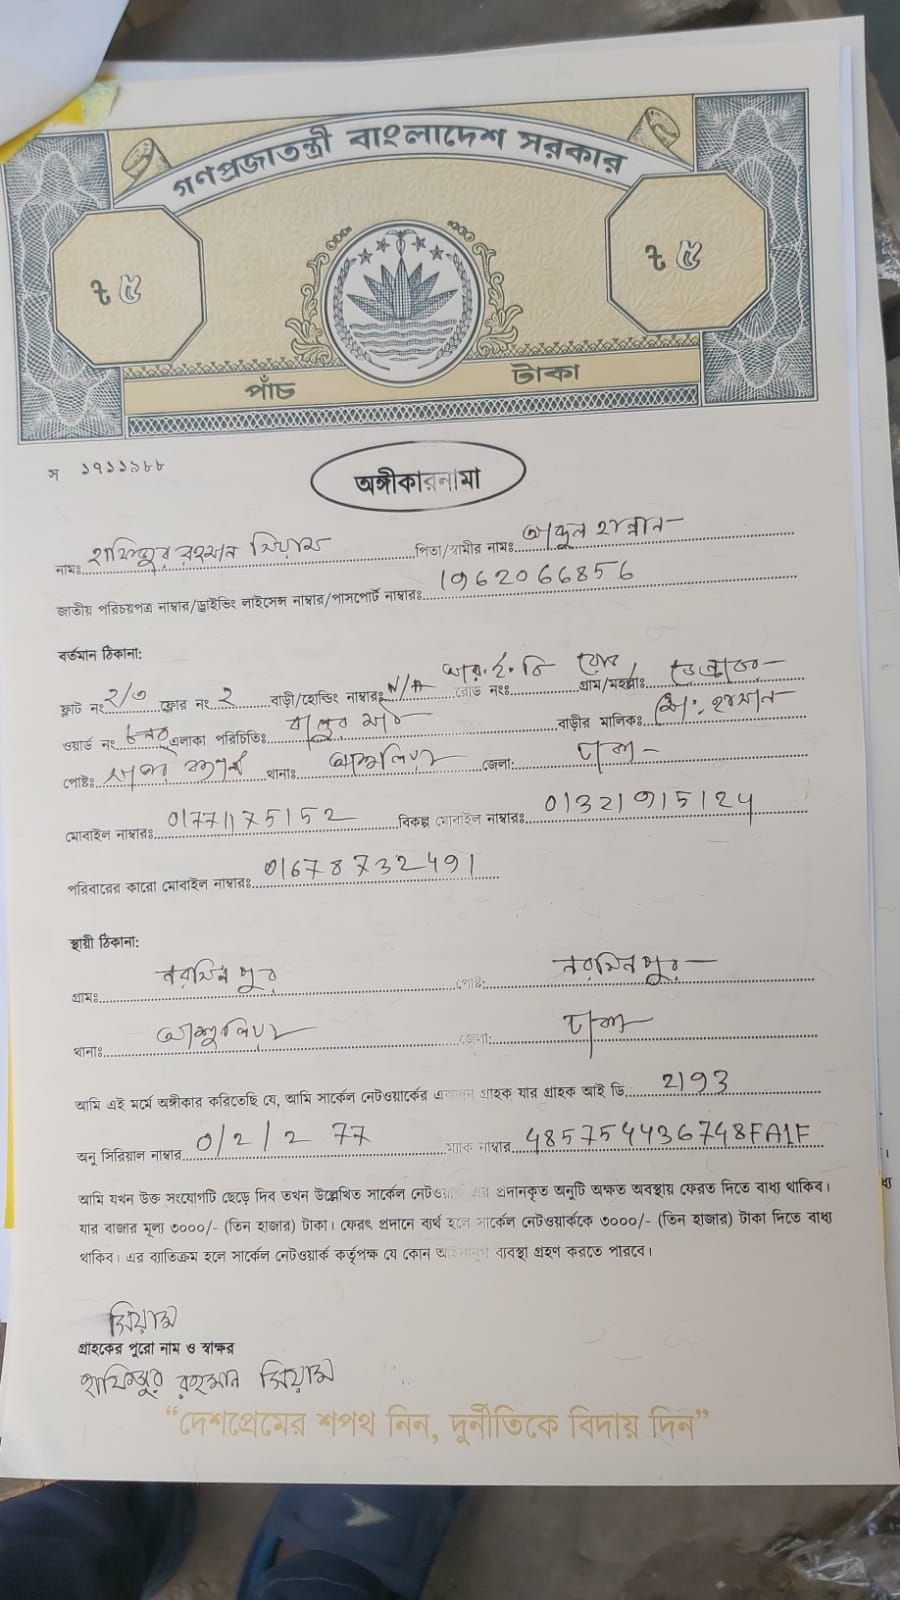 গণপ্রজাতন্ত্রী বাংলাদেশ সরকার
৳ ৫
৳ ৫
পাঁচ টাকা
স ১৭১১৯৮৮
অঙ্গীকারনামা
নামঃ হাফিজুর রহমান সিয়াম পিতা/স্বামীর নামঃ
জাতীয় পরিচয়পত্র নাম্বার/ড্রাইভিং লাইসেন্স নাম্বার/পাসপোর্ট নাম্বারঃ 1962066856
বর্তমান ঠিকানা:
ফ্লাট নং ২/৩ ফ্লোর নং ২ বাড়ী/হোল্ডিং নাম্বারঃ N/A রোড নংঃ গ্রাম/মহল্লাঃ
ওয়ার্ড নং এলাকা পরিচিতিঃ বাড়ীর মালিক:
পোষ্টঃ থানাঃ জেলা: ঢাকা
মোবাইল নাম্বারঃ 01771175152 বিকল্প মোবাইল নাম্বারঃ 01321915124
পরিবারের কারো মোবাইল নাম্বারঃ 01678732491
স্থায়ী ঠিকানা:
গ্রামঃ নরসিনপুর পোষ্ট: নরসিনপুর
থানাঃ আশুলিয়া জেলা: ঢাকা
আমি এই মর্মে অঙ্গীকার করিতেছি যে, আমি সার্কেল নেটওয়ার্কের একজন গ্রাহক যার গ্রাহক আই ডি. 2193
অনু সিরিয়াল নাম্বার 0/2/2 77 ম্যাক নাম্বার 485754436748FA1F
আমি যখন উক্ত সংযোগটি ছেড়ে দিব তখন উল্লেখিত সার্কেল নেটওয়ার্ক এর প্রদানকৃত অনুটি অক্ষত অবস্থায় ফেরত দিতে বাধ্য থাকিব।
যার বাজার মূল্য ৩০০০/- (তিন হাজার) টাকা। ফেরৎ প্রদানে ব্যর্থ হলে সার্কেল নেটওয়ার্ককে ৩০০০/- (তিন হাজার) টাকা দিতে বাধ্য
থাকিব। এর ব্যতিক্রম হলে সার্কেল নেটওয়ার্ক কর্তৃপক্ষ যে কোন আইনানুগ ব্যবস্থা গ্রহণ করতে পারবে।
সিয়াম
গ্রাহকের পুরো নাম ও স্বাক্ষর
হাফিজুর রহমান সিয়াম
“দেশপ্রেমের শপথ নিন, দুর্নীতিকে বিদায় দিন”